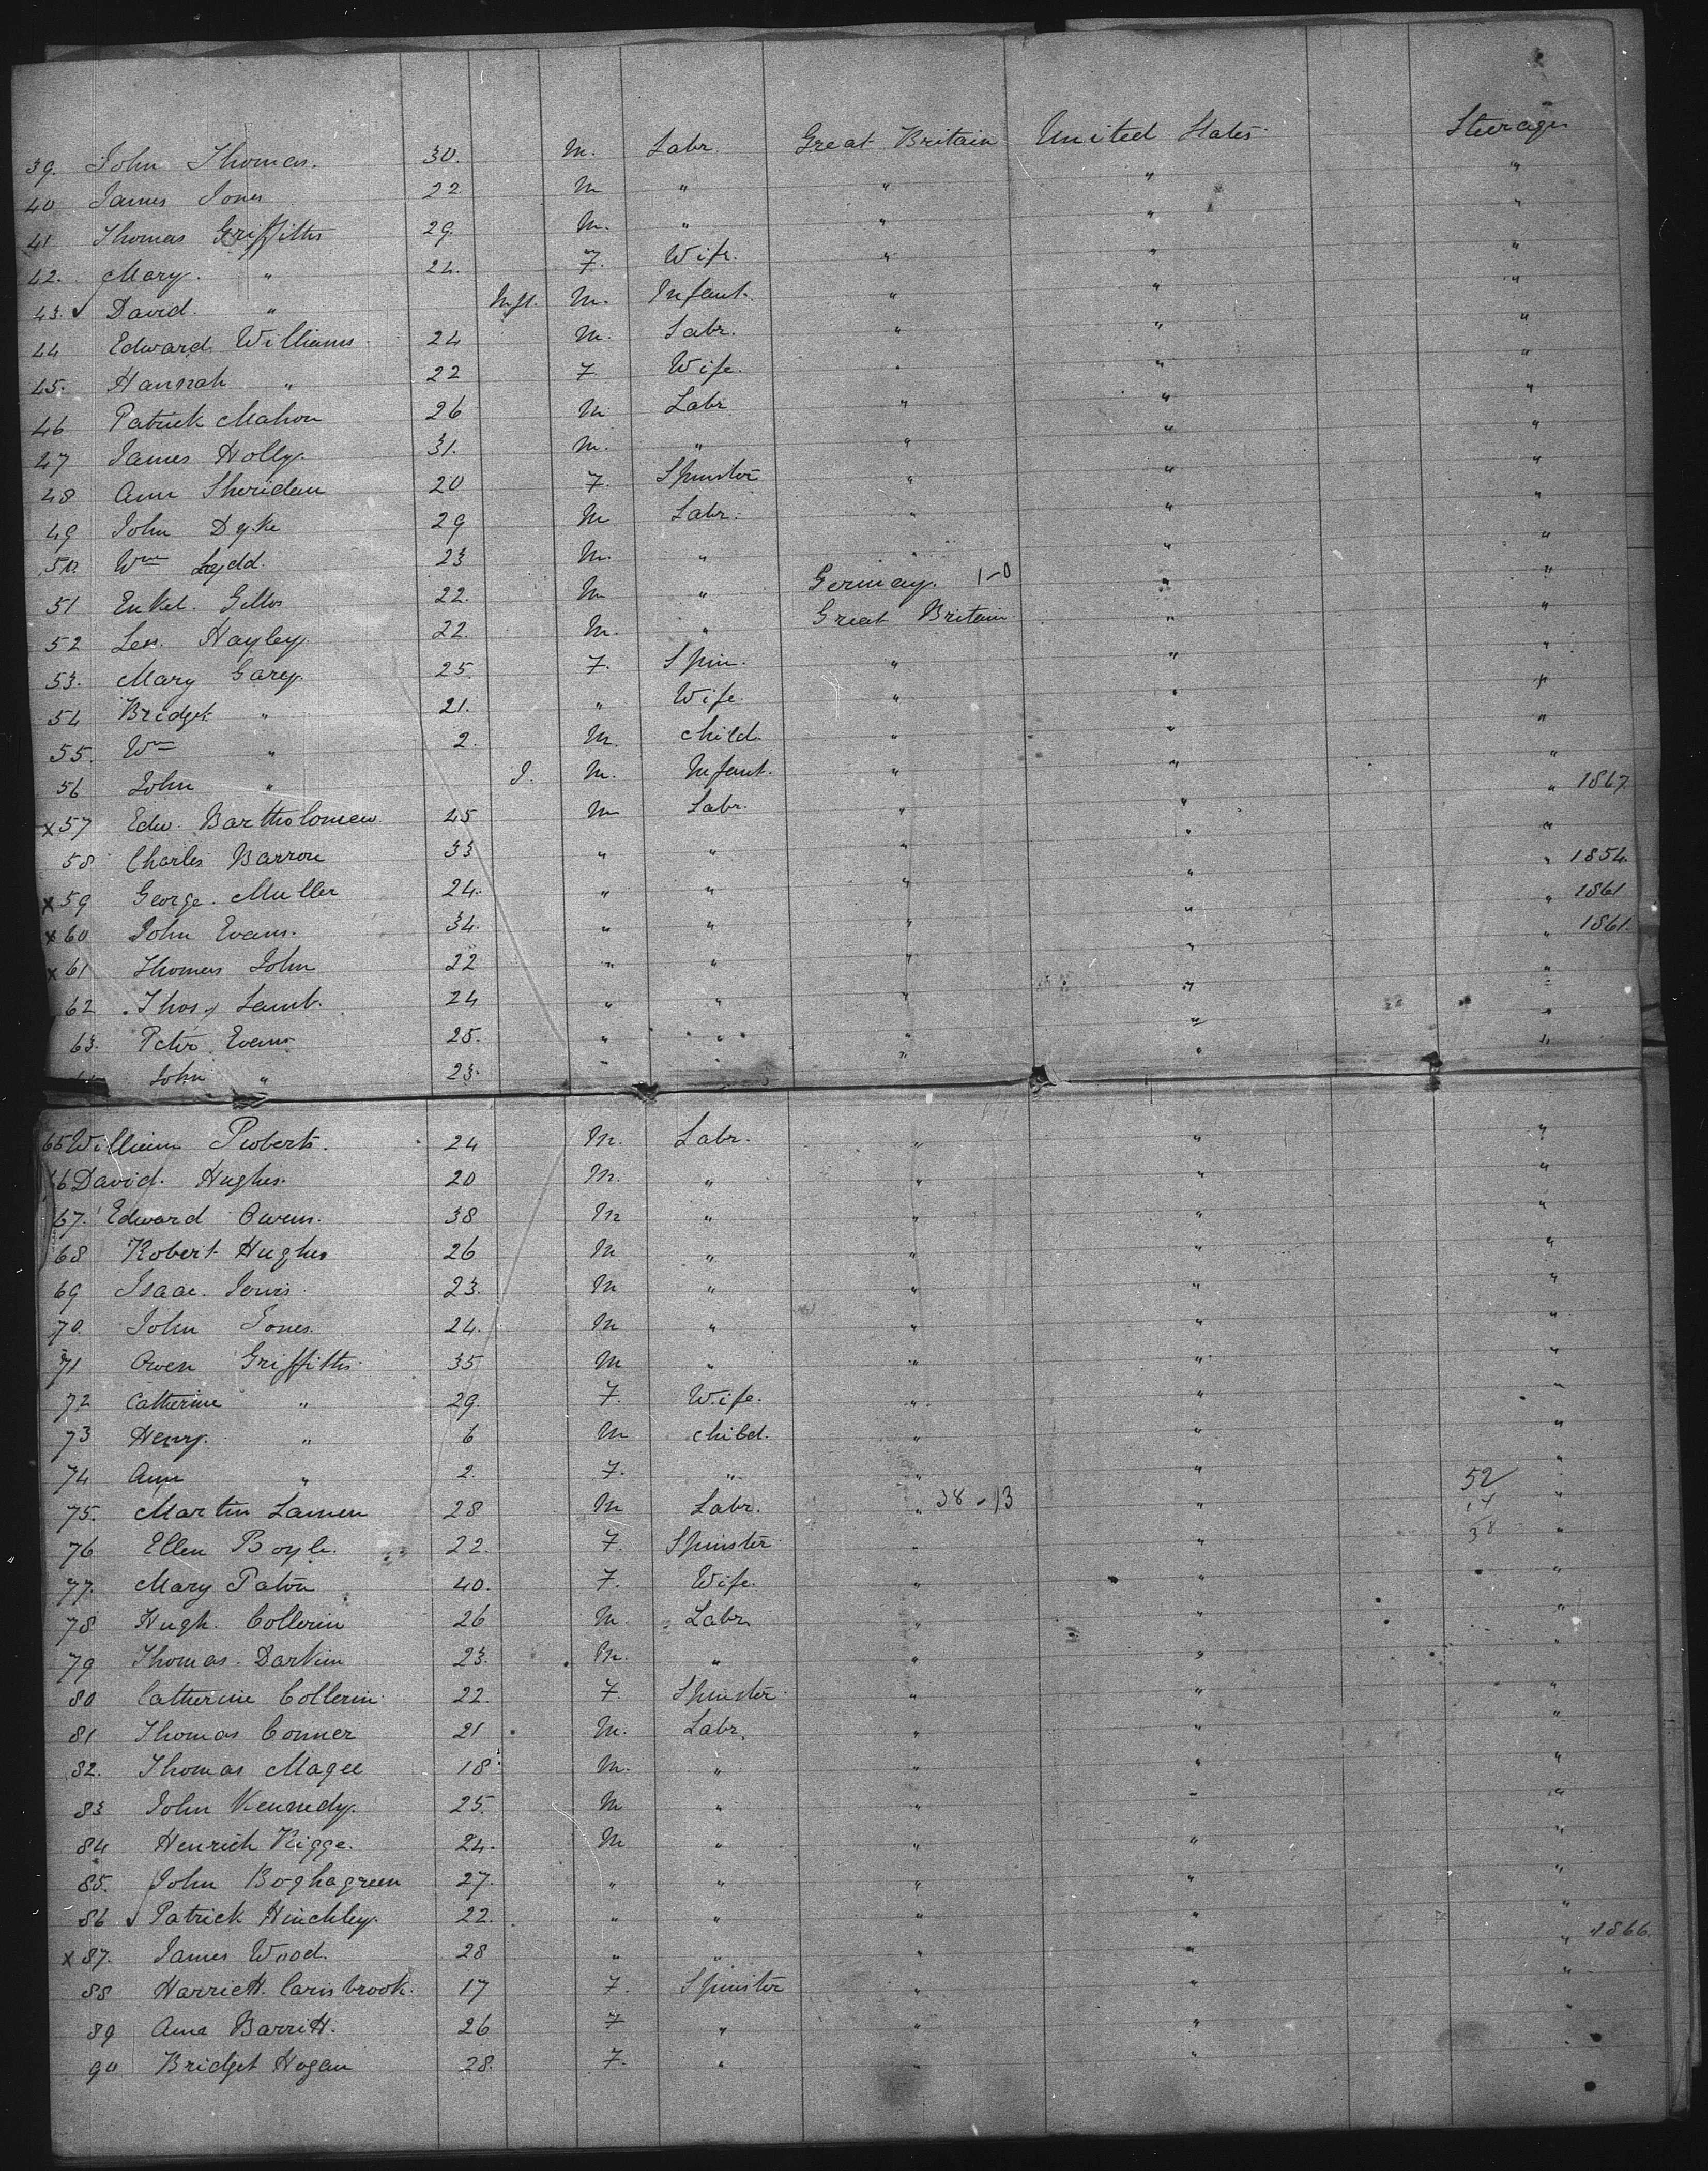 39. John Thomas. 30. M. Labr. Great Britain United States Steerage
40 James Jones 22. M " " " "
41 Thomas Griffiths 29. M. " " " "
42. Mary. " 24. F. Wife. " " "
43. David. " Inft. M. Infant. " " "
44 Edward Williams 24 M. Labr. " " "
45. Hannah " 22 F Wife. " " "
46 Patrick Mahon 26 M Labr " " "
47 James Holly. 31. M. " " " "
48 Ann Sheridan 20 F. Spinster " " "
49 John Dyke 29 M Labr. " " "
50. Wm 23 M. " " " "
51 22. M " Germany. 1-0 " "
52 Hayley. 22. M. " Great Britain " "
53. Mary Garey. 25. F. Spin. " " "
54 Bridget " 21. " Wife. " " "
55. Wm " 2. M. Child. " " "
56 John " I. M. Infant. " " "
x 57 Edw. Bartholomew. 45 M Labr. " " " 1867
58 Charles Barron 33 " " " " "
x 59 George. Muller 24. " " " " " 1854.
x 60 John Evans. 34. " " " " " 1861
x 61 Thomas John 22 " " " " " 1861.
62 Thos. Lamb. 24 " " " " "
63. Peter. Evans 25. " " " " "
John " 23. " " " " "
65 William Roberts. 24 M. Labr. " " "
66 David. Hughes. 20 M. " " " "
67. Edward Owens. 38 M " " " "
68 Robert Hughes 26 M " " " "
69 Isaac. 23. M " " " "
70. John Jones. 24. M " " " "
71 Owen Griffiths 35 M " " " "
72 Catherine " 29. F. Wife. " " "
73 Henry. " 6 M Child. " " "
74 Ann " 2. F. " " " "
75. Martin 28 M Labr. " 38-13 " 52 "
76 Ellen Boyle. 22. F. Spinster " " 14 38 "
77. Mary Paton 40. F. Wife. " " "
78 Hugh. Collerin 26 M. Labr. " " "
79 Thomas. Darkin 23. M. " " " "
80 Catherine Collerin 22. F. Spinster " " "
81 Thomas Conner 21 M. Labr. " " "
82. Thomas Magee 18 M. " " " "
83 John Kennedy. 25. M " " " "
84 Henrich Rigge. 24. M " " " "
85. John Boghagreen 27. " " " " "
86 Patrick Hinchley. 22. " " " " "
x 87. James Wood. 28 " " " " " 1866.
88 Harriett. Carisbrook. 17 F. Spinster " " "
89 Ann Barritt. 26 F " " " "
90 Bridget Hogan 28. F. " " " "